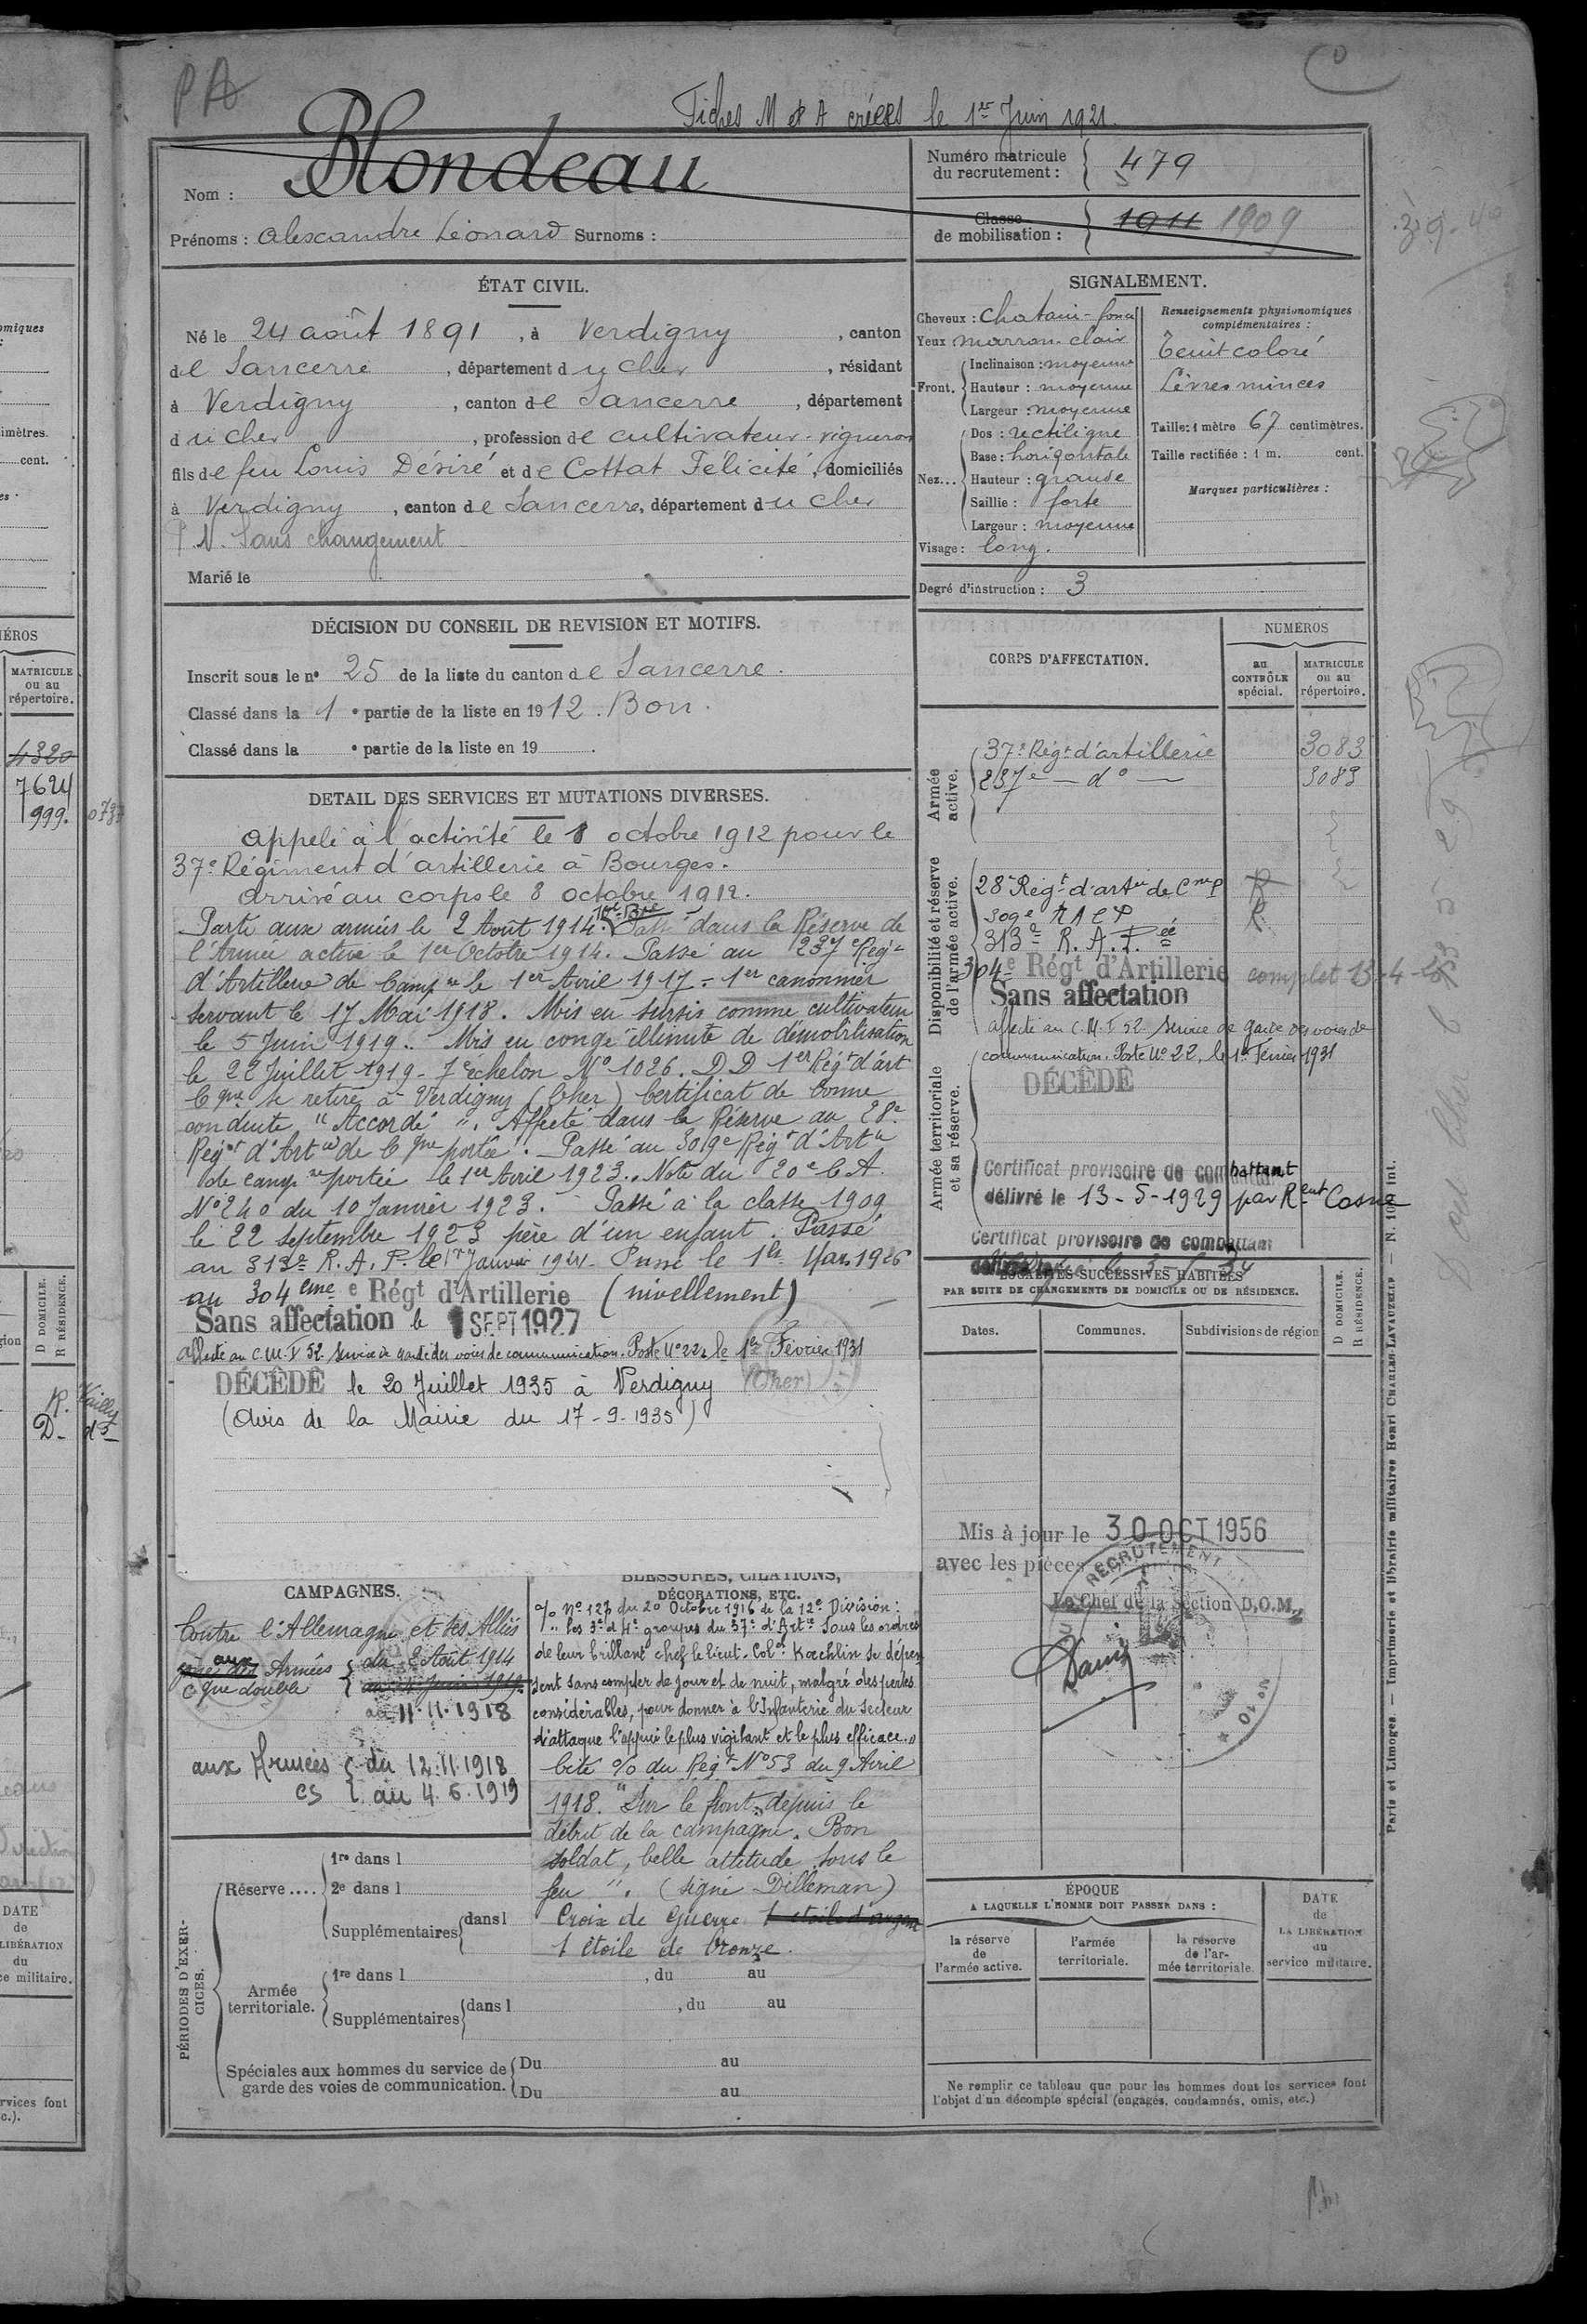 PA
Fiches M et A créées le 1er Juin 1921.
Nom : Blondeau
Prénoms : Alexandre Léonard Surnoms :
Numéro matricule du recrutement : 479
Classe de mobilisation : 1911 1909
ÉTAT CIVIL.
Né le 24 août 1891, à Verdigny, canton
de Sancerre, département du Cher, résidant
à Verdigny, canton de Sancerre, département
du Cher, profession de cultivateur-vigneron
fils de feu Louis Désiré et de Cottat Félicité, domiciliés
à Verdigny, canton de Sancerre, département du Cher
N. Sans changement
Marié le
SIGNALEMENT.
Cheveux : Chatain-foncé
Yeux marron-clair
Front. Inclinaison : moyenne
Hauteur : moyenne
Largeur : moyenne
Nez... Dos : rectiligne
Base : horizontale
Hauteur : grande
Saillie : forte
Largeur : moyenne
Visage : long.
Renseignements physionomiques complémentaires :
Teint coloré
Lèvres minces
Taille : 1 mètre 67 centimètres.
Taille rectifiée : 1 m. cent.
Marques particulières :
Degré d'instruction : 3
DÉCISION DU CONSEIL DE REVISION ET MOTIFS.
Inscrit sous le n° 25 de la liste du canton de Sancerre.
Classé dans la 1e partie de la liste en 1912. Bon.
Classé dans la e partie de la liste en 19 .
DETAIL DES SERVICES ET MUTATIONS DIVERSES.
Appelé à l'activité le 8 octobre 1912 pour le
37e Régiment d'artillerie à Bourges.
Arrivé au corps le 8 octobre 1912.
Parti aux armées le 2 Août 1914. Passé dans la Réserve de
l'Armée active le 1er Octobre 1914. Passé au 237e Régt
d'Artillerie de Campne le 1er Avril 1917 = 1er canonnier
servant le 17 Mai 1918. Mis en sursis comme cultivateur
le 5 Juin 1919.. Mis en congé illimité de démobilisation
le 22 Juillet 1919 - 7e échelon N° 1026. DD 1er Régt d'art
Cgne se retire à Verdigny (Cher) Certificat de bonne
conduite "Accordé". Affecté dans la Réserve au 28e
Régnt d'Artie de Cgne portée. Passé au 309e Régt d'Artie
de campne portée le 1er Avril 1923. Note du 20e C.A.
N° 240 du 10 Janvier 1923. Passé à la classe 1909
le 22 septembre 1923 père d'un enfant. Passé
au 313e R.A.P. le 1er Janvier 1924. Passé le 1er Mars 1926
au 304eme e Régt d'Artillerie (nivellement)
Sans affectation le 1 SEPT 1927
Affecté au C.M.T 52 Service de garde des voies de communication. Poste N° 22, le 1er Février 1931
DÉCÉDÉ le 20 Juillet 1935 à Verdigny (Cher)
(Avis de la Mairie du 17-9-1935)
CORPS D'AFFECTATION.
NUMEROS
au CONTRÔLE spécial.
MATRICULE ou au répertoire.
Armée active.
37e Régt d'artillerie 3083
237e — d° — 3083
Disponibilité et réserve de l'armée active.
28e Régt d'artie de Cne P R
309e RACP R
313e R.A.P.ée
304e Régt d'Artillerie complet 13-4-
Sans affectation
affecté au C.M.T 52 Service de garde des voies de
communication. Poste N° 22, le 1er Février 1931
Armée territoriale et sa réserve.
DÉCÉDÉ
Certificat provisoire de combattant
délivré le 13-5-1929 par Rent Cosne
Certificat provisoire de combattant
LOCALITÉS SUCCESSIVES HABITÉES
PAR SUITE DE CHANGEMENTS DE DOMICILE OU DE RÉSIDENCE.
Dates. Communes. Subdivisions de région
D DOMICILE.
R RÉSIDENCE.
Mis à jour le 30 OCT 1956
avec les pièces
Le Chef de la Section D.O.M.
RECRUTEMENT
CAMPAGNES.
Contre l'Allemagne et ses Alliés
aux Armées du 2 Août 1914
Cgne double
au 11.11.1918
aux Armées du 12.11.1918
CS au 4.6.1919
BLESSURES, CITATIONS,
DÉCORATIONS, ETC.
% N° 127 du 20 Octobre 1916 de la 12e Division :
"Les 3e et 4e groupes du 37e d'Artie Sous les ordres
de leur brillant chef le lieut-Colel Kœchlin se dépen
sent sans compter de jour et de nuit, malgré des pertes
considérables, pour donner à l'Infanterie du secteur
d'attaque l'appui le plus vigilant et le plus efficace."
Cité % du Régt N° 53 du 9 Avril
1918. "Sur le front depuis le
début de la campagne. Bon
soldat, belle attitude sous le
feu". (signé Dilleman)
Croix de Guerre 1 étoile d'argent
1 étoile de bronze.
PÉRIODES D'EXERCICES.
Réserve.... 1re dans l
2e dans l
Supplémentaires dans l
Armée territoriale. 1re dans l , du au
Supplémentaires dans l , du au
Spéciales aux hommes du service de garde des voies de communication. Du au
Du au
ÉPOQUE
A LAQUELLE L'HOMME DOIT PASSER DANS :
la réserve de l'armée active.
l'armée territoriale.
la réserve de l'armée territoriale.
DATE de LA LIBÉRATION du service militaire.
Ne remplir ce tableau que pour les hommes dont les services font
l'objet d'un décompte spécial (engagés, condamnés, omis, etc.)
Paris et Limoges. — Imprimerie et librairie militaires Henri CHARLES-LAVAUZELLE
MATRICULE
ou au
répertoire.
4320
7624
999.
D DOMICILE.
R RÉSIDENCE.
R. Vailly
D- d°-
DATE
de
LIBÉRATION
du
ce militaire.